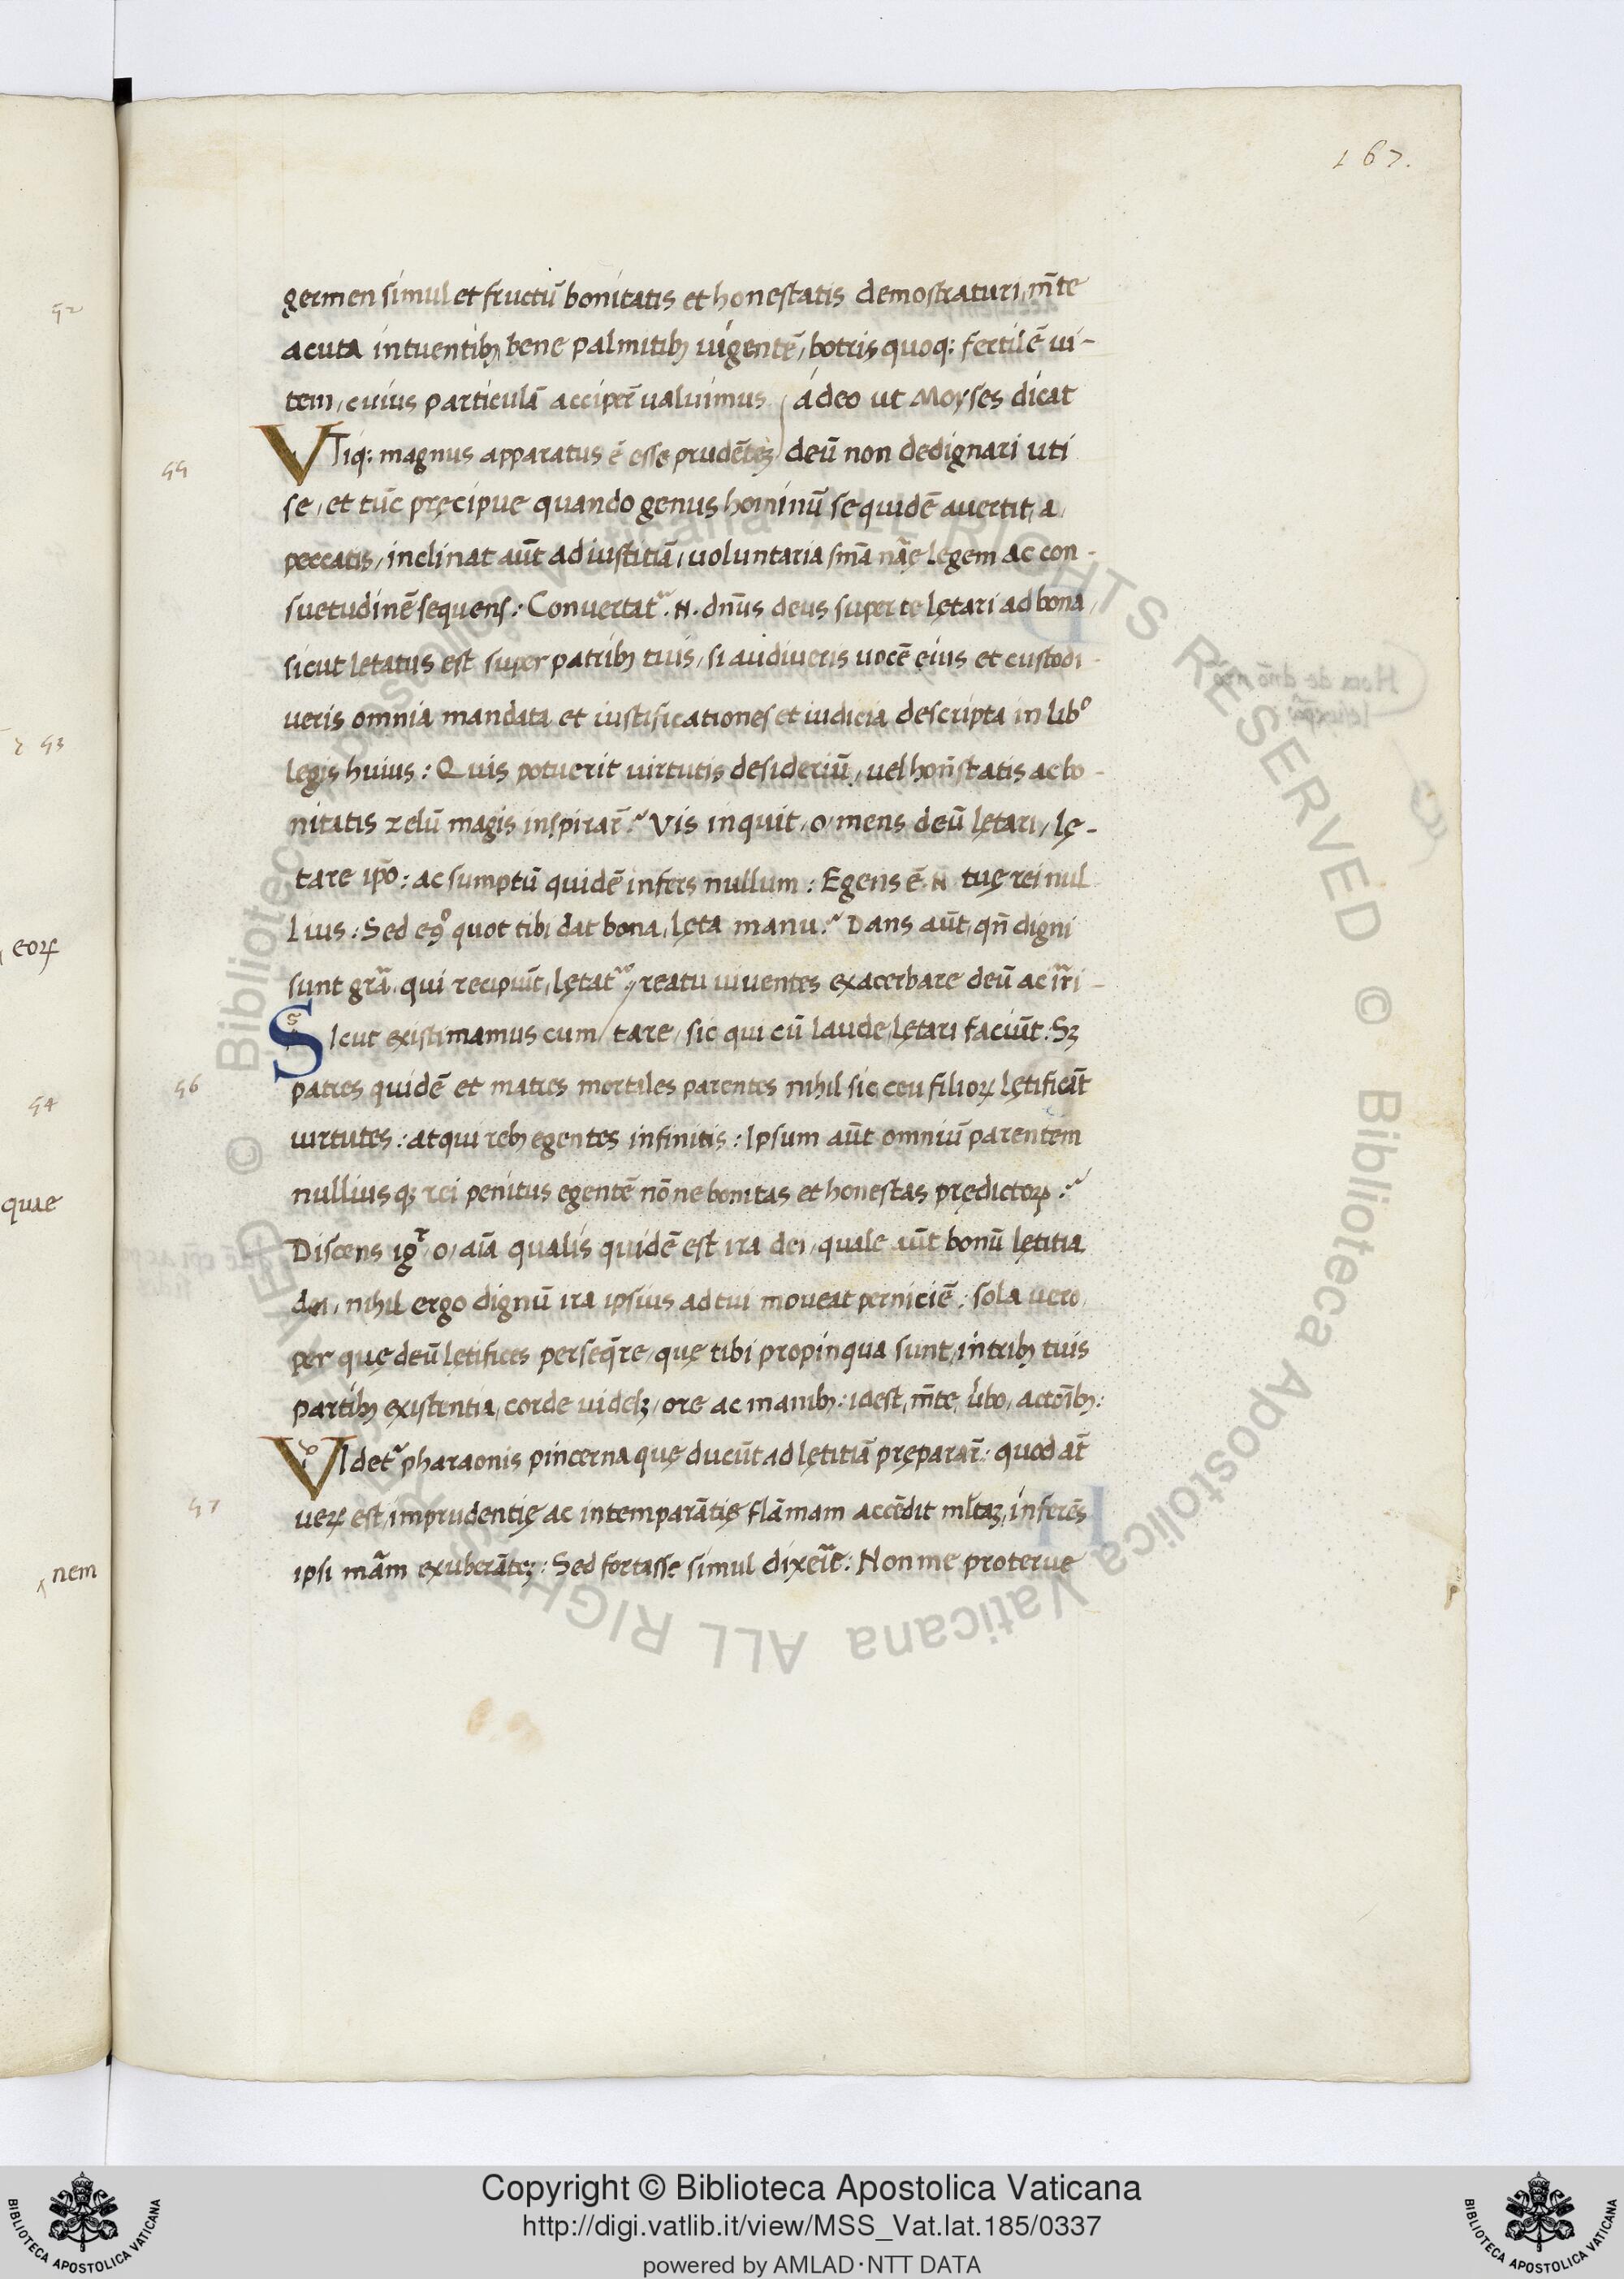 167.
germen simul et fructū bonitatis et honestatis demostraturi, m̄te
acuta intuentibȝ bene palmitibȝ uigentē, botris quoq: fertilē ui-
tem, cuius particulā acciper̄ ualuimus adeo ut Moyses dicat
VTiq: magnus apparatus ē esse prudētēȝ deū non dedignari uti
se, et tūc pręcipue quando genus hominū se quidē auertit, a,
peccatis, inclinat aūt ad iustitiā, uoluntaria sm̄a nāę legem ac con-
suetudinē sequens: Conuertat᷑. N. dn̄us deus super te lętari ad bona,
sicut letatus est super patribȝ tuis, si audiueris uocē eius et custodi-
ueris omnia mandata et iustificationes et iudicia descripta in libº
legis huius: Quis potuerit uirtutis desideriū, uel hon̄statis ac bo-
nitatis zelū magis inspirar̄? Vis inquit, o, mens deū lętari, lę-
tare ip̄o: ac sumptū quidē infers nullum: Egens ē. N tuę rei nul
lius: Sed eꝯº quot tibi dat bona, lęta manu? Dans aūt, qn̄ digni
sunt grā, qui recipiūt, lętat᷑ reatu uiuentes exacerbare deū ac irri-
SIcut existimamus cum tare, sic qui cū laude lętari faciūt. Sȝ
patres quidē et matres mortales parentes nihil sic ceu filioꝝ lętificāt
uirtutes: atqui rebȝ egentes infinitis: Ipsum aūt omniū parentem
nulliusqȝ rei penitus egentē nōne bonitas et honestas prędictoꝝ?
Discens igᷣ, o, aīa qualis quidē est ira dei, quale aūt bonū lętitia
dei, nihil ergo dignū ira ipsius ad tui moueat perniciē: sola uero
per quę deū lętifices perseq̄re, quę tibi propinqua sunt, in tribȝ tuis
partibȝ existentia, corde videlȝ, ore ac manibȝ: idest, m̄te, ūbo, actōībȝ:
VIdet᷑ pharaonis pincerna quę ducūt ad lętitiā pręparar̄: quod at̄
ueꝝ est, imprudentię ac intemparātię flāmam accēdit ml̄taȝ, inferēs
ipsi mām exuberātēȝ: Sed fortasse simul dixeīt: Non me proterue
52
55
53
eoꝝ
54
56
quae
57
nem
Copyright © Biblioteca Apostolica Vaticana
http://digi.vatlib.it/view/MSS_Vat.lat.185/0337
powered by AMLAD·NTT DATA
BIBLIOTECA APOSTOLICA VATICANA
BIBLIOTECA APOSTOLICA VATICANA
© Biblioteca Apostolica Vaticana ALL RIGHTS RESERVED © Biblioteca Apostolica Vaticana ALL RIGHTS RESERVED